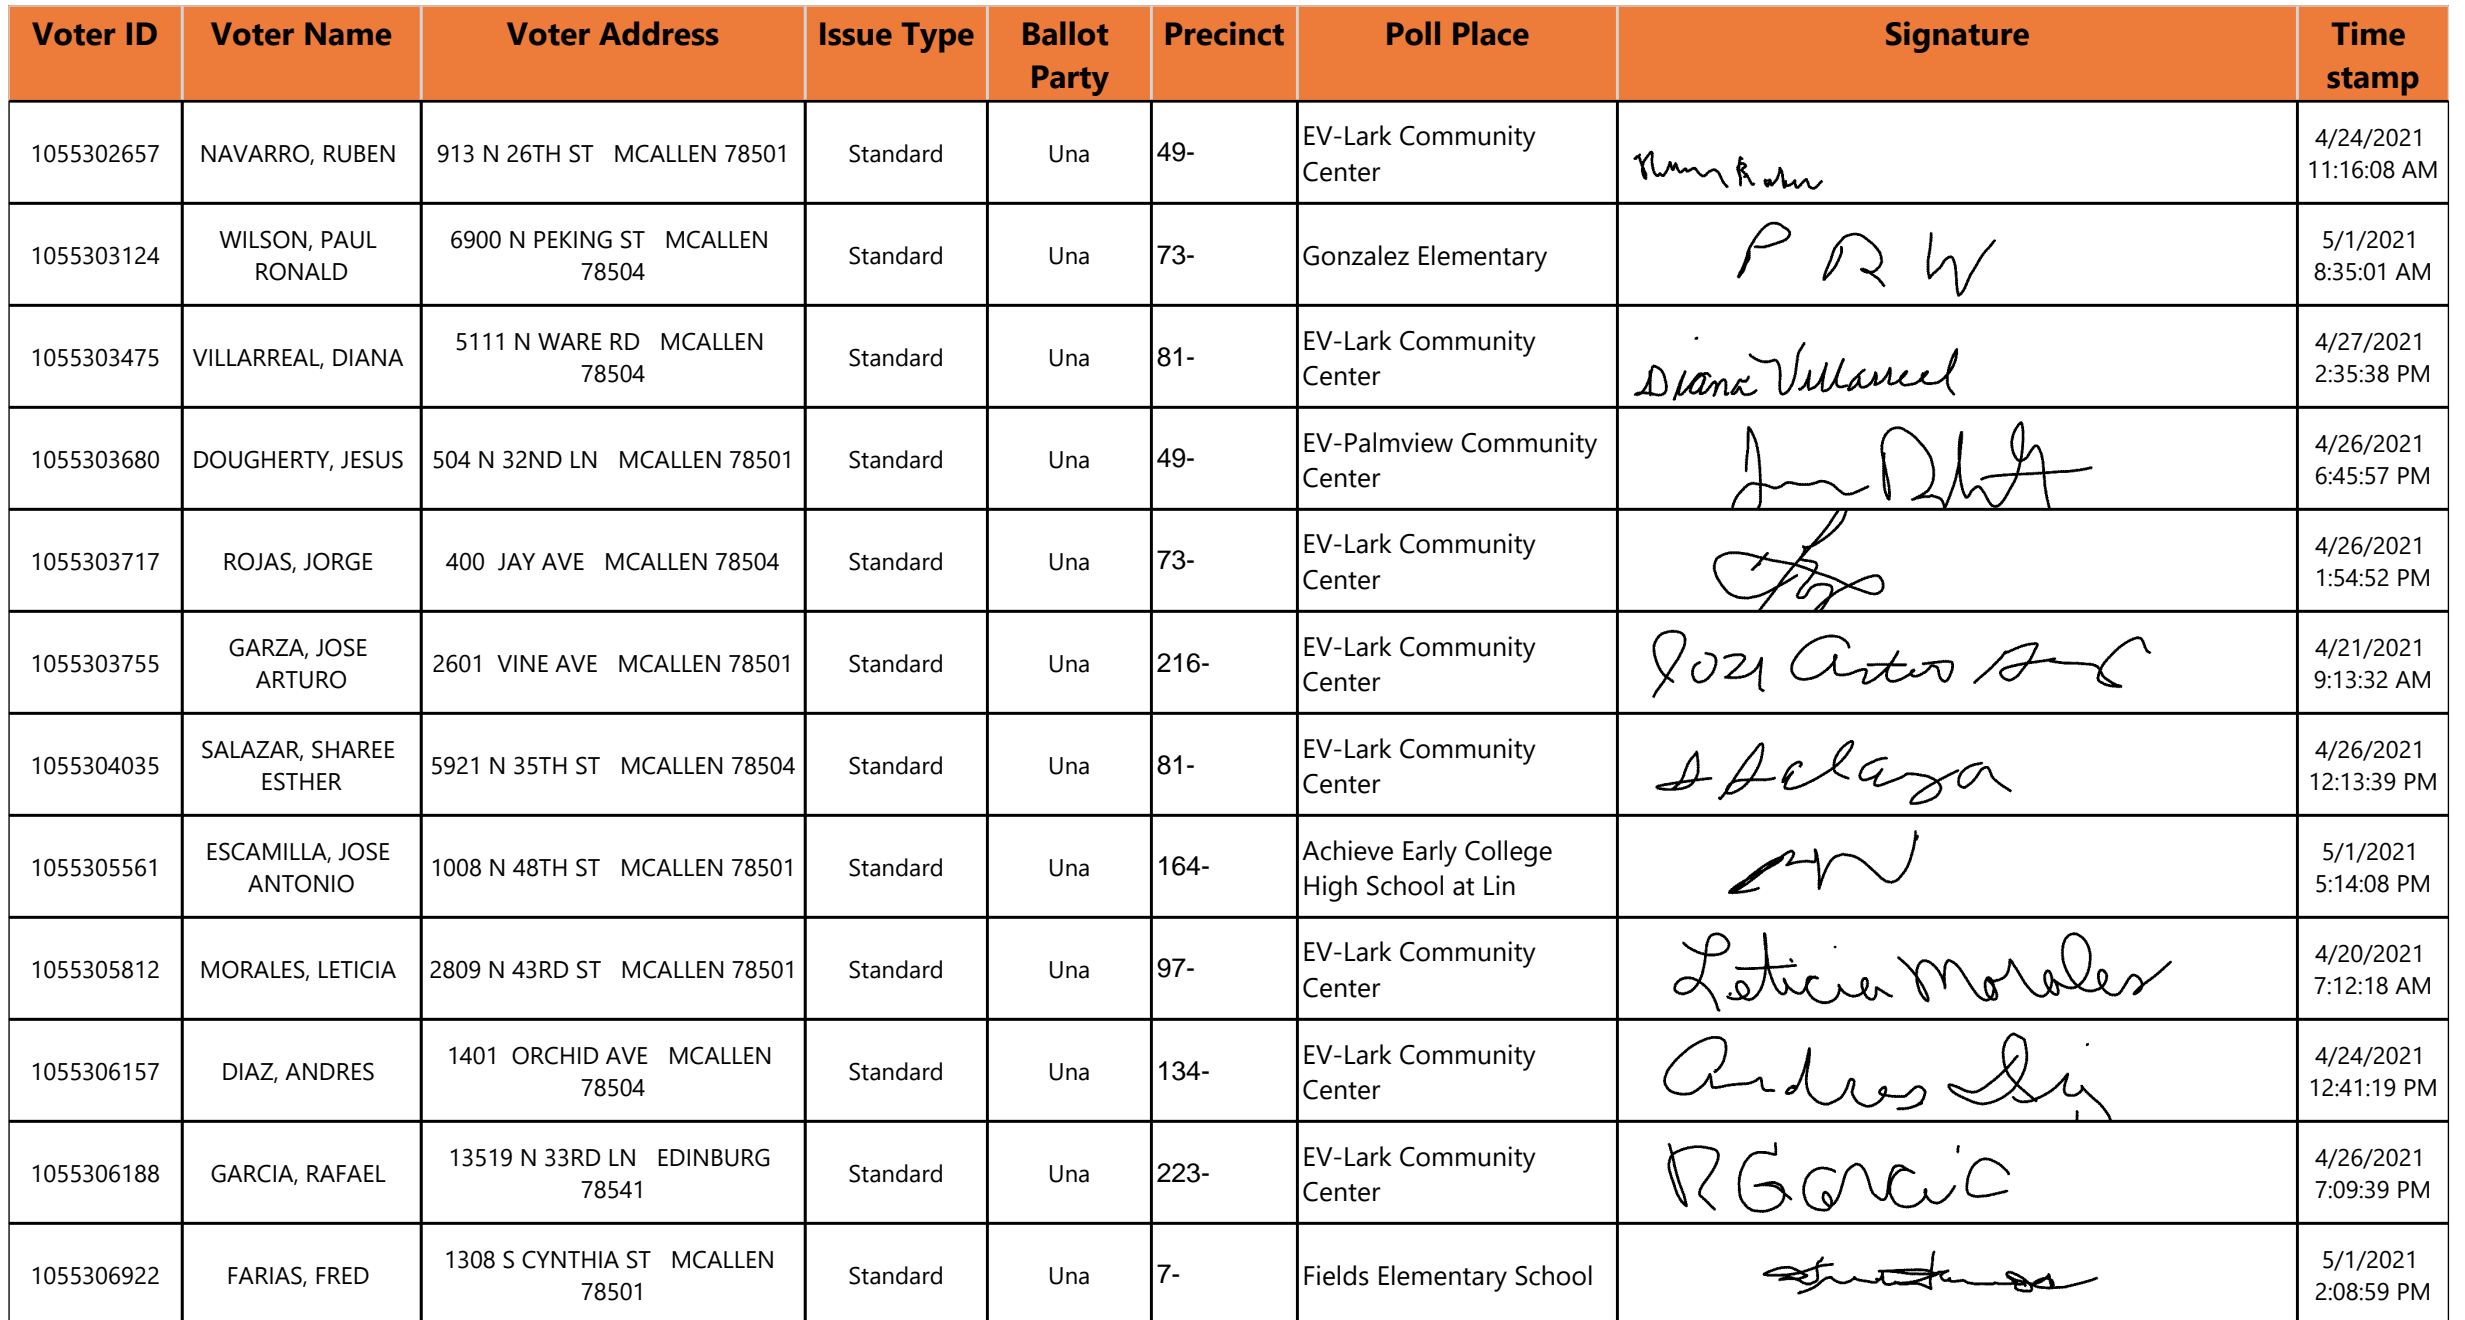 Voter ID Voter Name Voter Address Issue Type Ballot Party Precinct Poll Place Signature Time stamp
1055302657 NAVARRO, RUBEN 913 N 26TH ST MCALLEN 78501 Standard Una 49- EV-Lark Community Center 4/24/2021 11:16:08 AM
1055303124 WILSON, PAUL RONALD 6900 N PEKING ST MCALLEN 78504 Standard Una 73- Gonzalez Elementary P R W 5/1/2021 8:35:01 AM
1055303475 VILLARREAL, DIANA 5111 N WARE RD MCALLEN 78504 Standard Una 81- EV-Lark Community Center Diana Villarreal 4/27/2021 2:35:38 PM
1055303680 DOUGHERTY, JESUS 504 N 32ND LN MCALLEN 78501 Standard Una 49- EV-Palmview Community Center 4/26/2021 6:45:57 PM
1055303717 ROJAS, JORGE 400 JAY AVE MCALLEN 78504 Standard Una 73- EV-Lark Community Center 4/26/2021 1:54:52 PM
1055303755 GARZA, JOSE ARTURO 2601 VINE AVE MCALLEN 78501 Standard Una 216- EV-Lark Community Center 4/21/2021 9:13:32 AM
1055304035 SALAZAR, SHAREE ESTHER 5921 N 35TH ST MCALLEN 78504 Standard Una 81- EV-Lark Community Center S Salaza 4/26/2021 12:13:39 PM
1055305561 ESCAMILLA, JOSE ANTONIO 1008 N 48TH ST MCALLEN 78501 Standard Una 164- Achieve Early College High School at Lin 5/1/2021 5:14:08 PM
1055305812 MORALES, LETICIA 2809 N 43RD ST MCALLEN 78501 Standard Una 97- EV-Lark Community Center Leticia Morales 4/20/2021 7:12:18 AM
1055306157 DIAZ, ANDRES 1401 ORCHID AVE MCALLEN 78504 Standard Una 134- EV-Lark Community Center Andres 4/24/2021 12:41:19 PM
1055306188 GARCIA, RAFAEL 13519 N 33RD LN EDINBURG 78541 Standard Una 223- EV-Lark Community Center R Garcia 4/26/2021 7:09:39 PM
1055306922 FARIAS, FRED 1308 S CYNTHIA ST MCALLEN 78501 Standard Una 7- Fields Elementary School 5/1/2021 2:08:59 PM